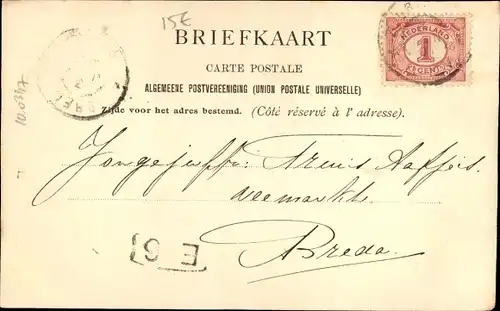 15€
BRIEFKAART
CARTE POSTALE
ALGEMEENE POSTVEREENIGING (UNION POSTALE UNIVERSELLE)
Zijde voor het adres bestemd. (Côté réservé à l'adresse).
NEDERLAND
1
CENT
Jongejuffr:
Veemarkt
Breda.
E 6